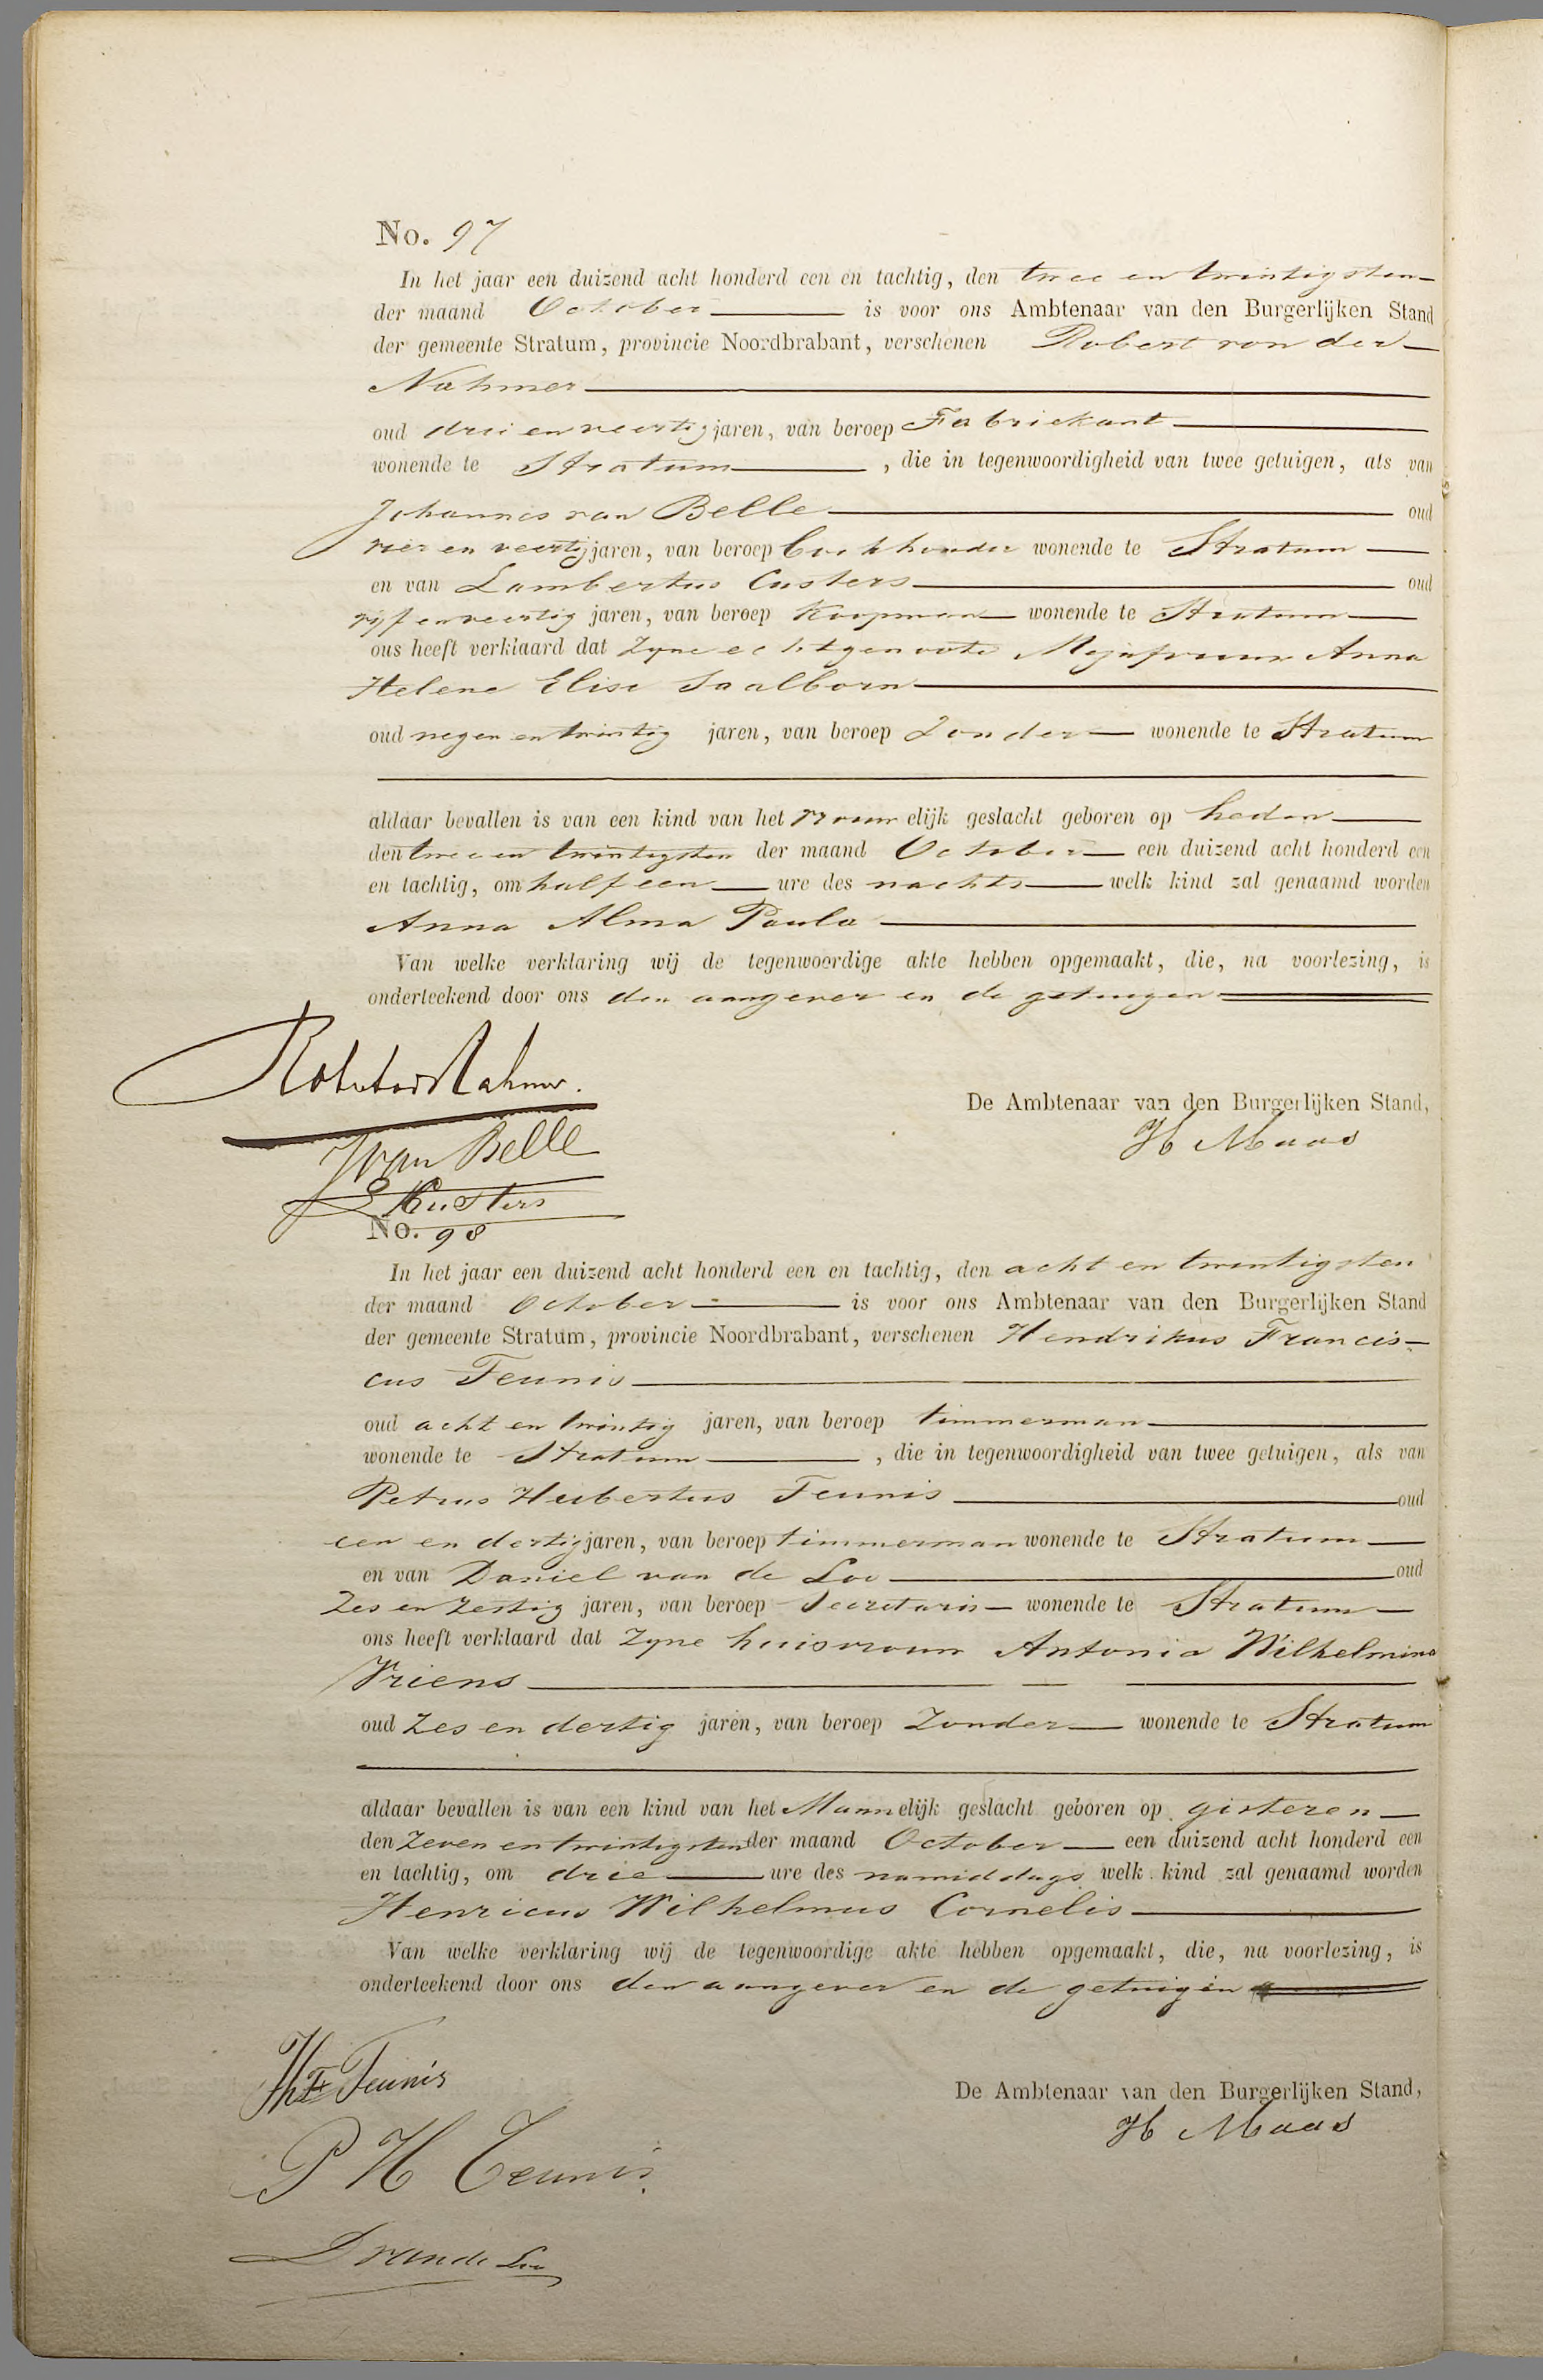 No. 97
In het jaar een duizend acht honderd een en tachtig, den twee en twintigsten
der maand October is voor ons Ambtenaar van den Burgerlijken Stand
der gemeente Stratum, provincie Noordbrabant, verschenen Robert von der
Nahmer
oud drie en veertig jaren, van beroep Fabriekant
wonende te Stratum, die in tegenwoordigheid van twee getuigen, als van
Johannes van Belle oud
vier en veertig jaren, van beroep boekhouder wonende te Stratum
en van Lambertus Custers oud
vijf en veertig jaren, van beroep Koopman wonende te Stratum
ons heeft verklaard dat zyne echtgenoote Mejufvrouw Anna
Helene Elise Saalborn
oud negen en twintig jaren, van beroep Zonder wonende te Stratum
aldaar bevallen is van een kind van het vrouwelijk geslacht geboren op heden
den twee en twintigsten der maand October een duizend acht honderd een
en tachtig, om half een ure des nachts welk kind zal genaamd worden
Anna Alma Paula
Van welke verklaring wij de tegenwoordige akte hebben opgemaakt, die, na voorlezing, is
onderteekend door ons den aangever en de getuigen
De Ambtenaar van den Burgerlijken Stand,
H Maas
JvanBelle
L Kusters
No. 98
In het jaar een duizend acht honderd een en tachtig, den acht en twintigsten
der maand October is voor ons Ambtenaar van den Burgerlijken Stand
der gemeente Stratum, provincie Noordbrabant, verschenen Hendrikus Francis-
cus Teunis
oud acht en twintig jaren, van beroep timmerman
wonende te Stratum, die in tegenwoordigheid van twee getuigen, als van
Petrus Hubertus Teunis oud
een en dertig jaren, van beroep timmerman wonende te Stratum
en van Daniel van de Loo oud
Zes en Zestig jaren, van beroep Secretaris wonende te Stratum
ons heeft verklaard dat Zyne huisvrouw Antonia Wilhelmina
Vriens
oud Zes en dertig jaren, van beroep Zonder wonende te Stratum
aldaar bevallen is van een kind van het Mannelijk geslacht geboren op gisteren
den Zeven en twintigsten der maand October een duizend acht honderd een
en tachtig, om drie ure des namiddags welk kind zal genaamd worden
Henricus Wilhelmus Cornelis
Van welke verklaring wij de tegenwoordige akte hebben opgemaakt, die, na voorlezing, is
onderteekend door ons den aangever en de getuigen
HF Teunis
De Ambtenaar van den Burgerlijken Stand,
H Maas
P H Teunis.
D van de Loo